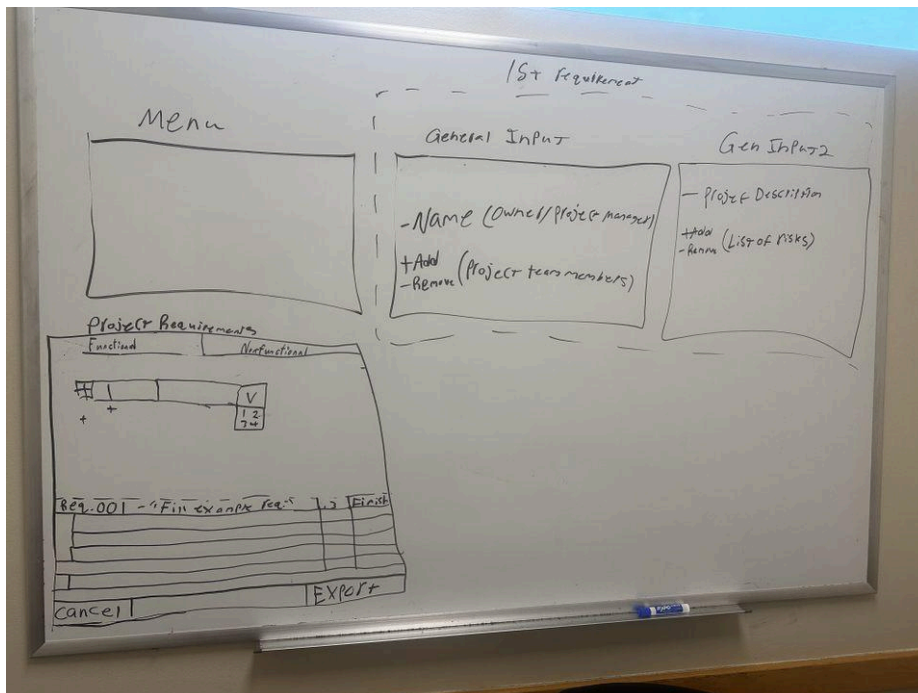 1st requirement
Menu
General Input
- Name (Owner/project manager)
+ Add
- Remove (Project team members)
Gen Input 2
- Project Description
+ Add
- Remove (List of risks)
Project Requirements
Functional
Nonfunctional
#
+
+
V
1 2
3 4
Req. 001 - "Fill example req."
Finish
Cancel
Export